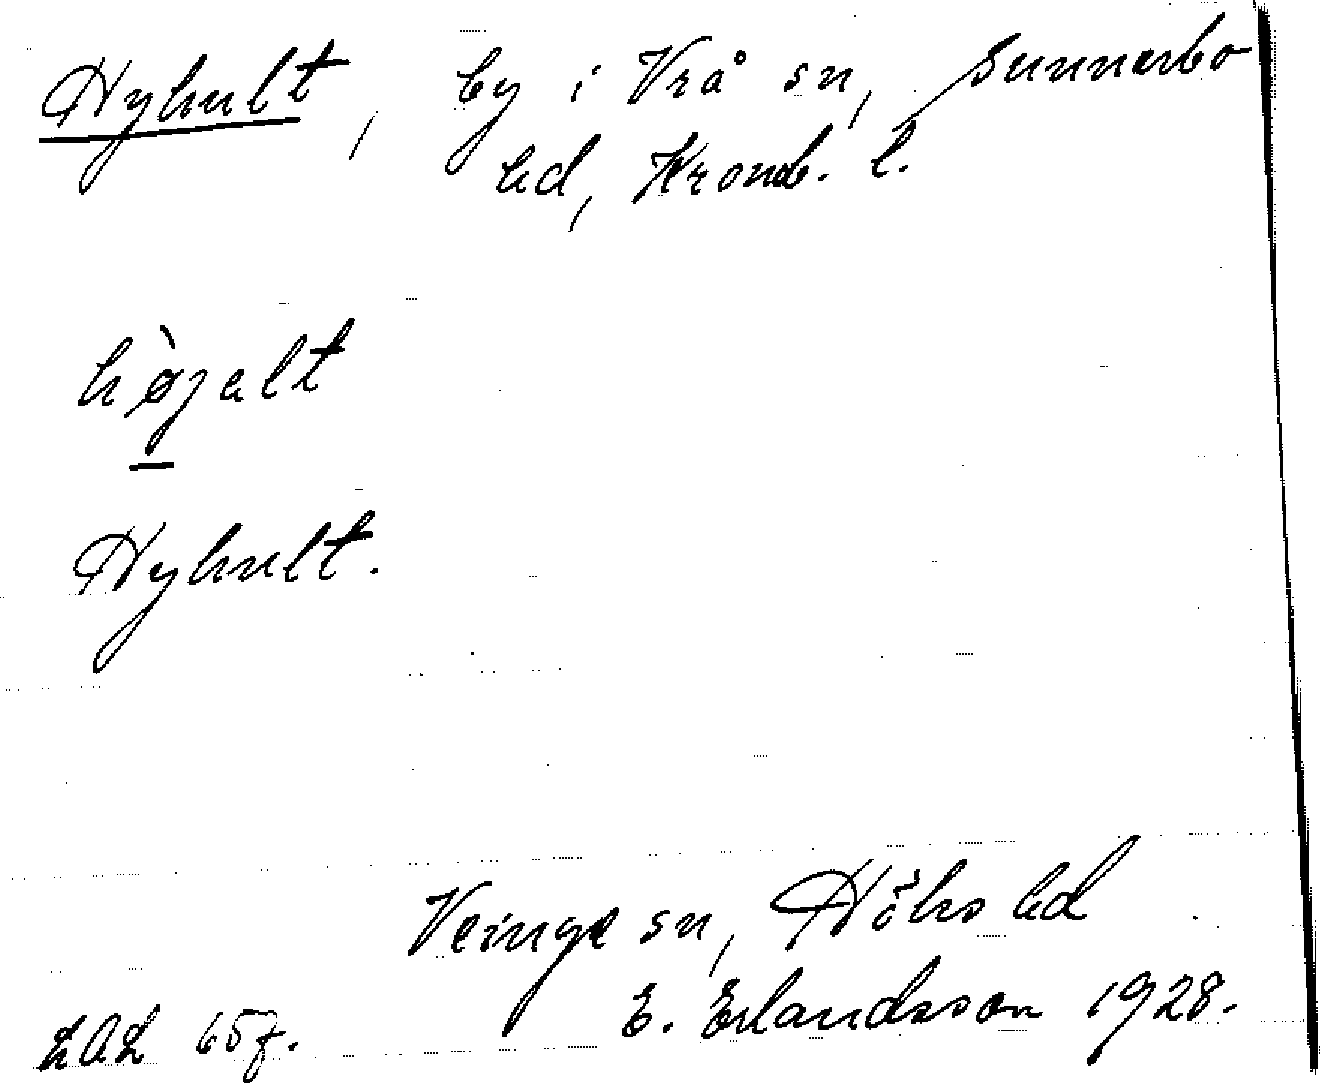 Hyhult, by i Vrå sn, Sunnerbo
hd, Kronb. l.
hø̀jalt
Hyhult.
Veinge sn, Höks hd
E. Erlandsson 1928.
LAL 657.